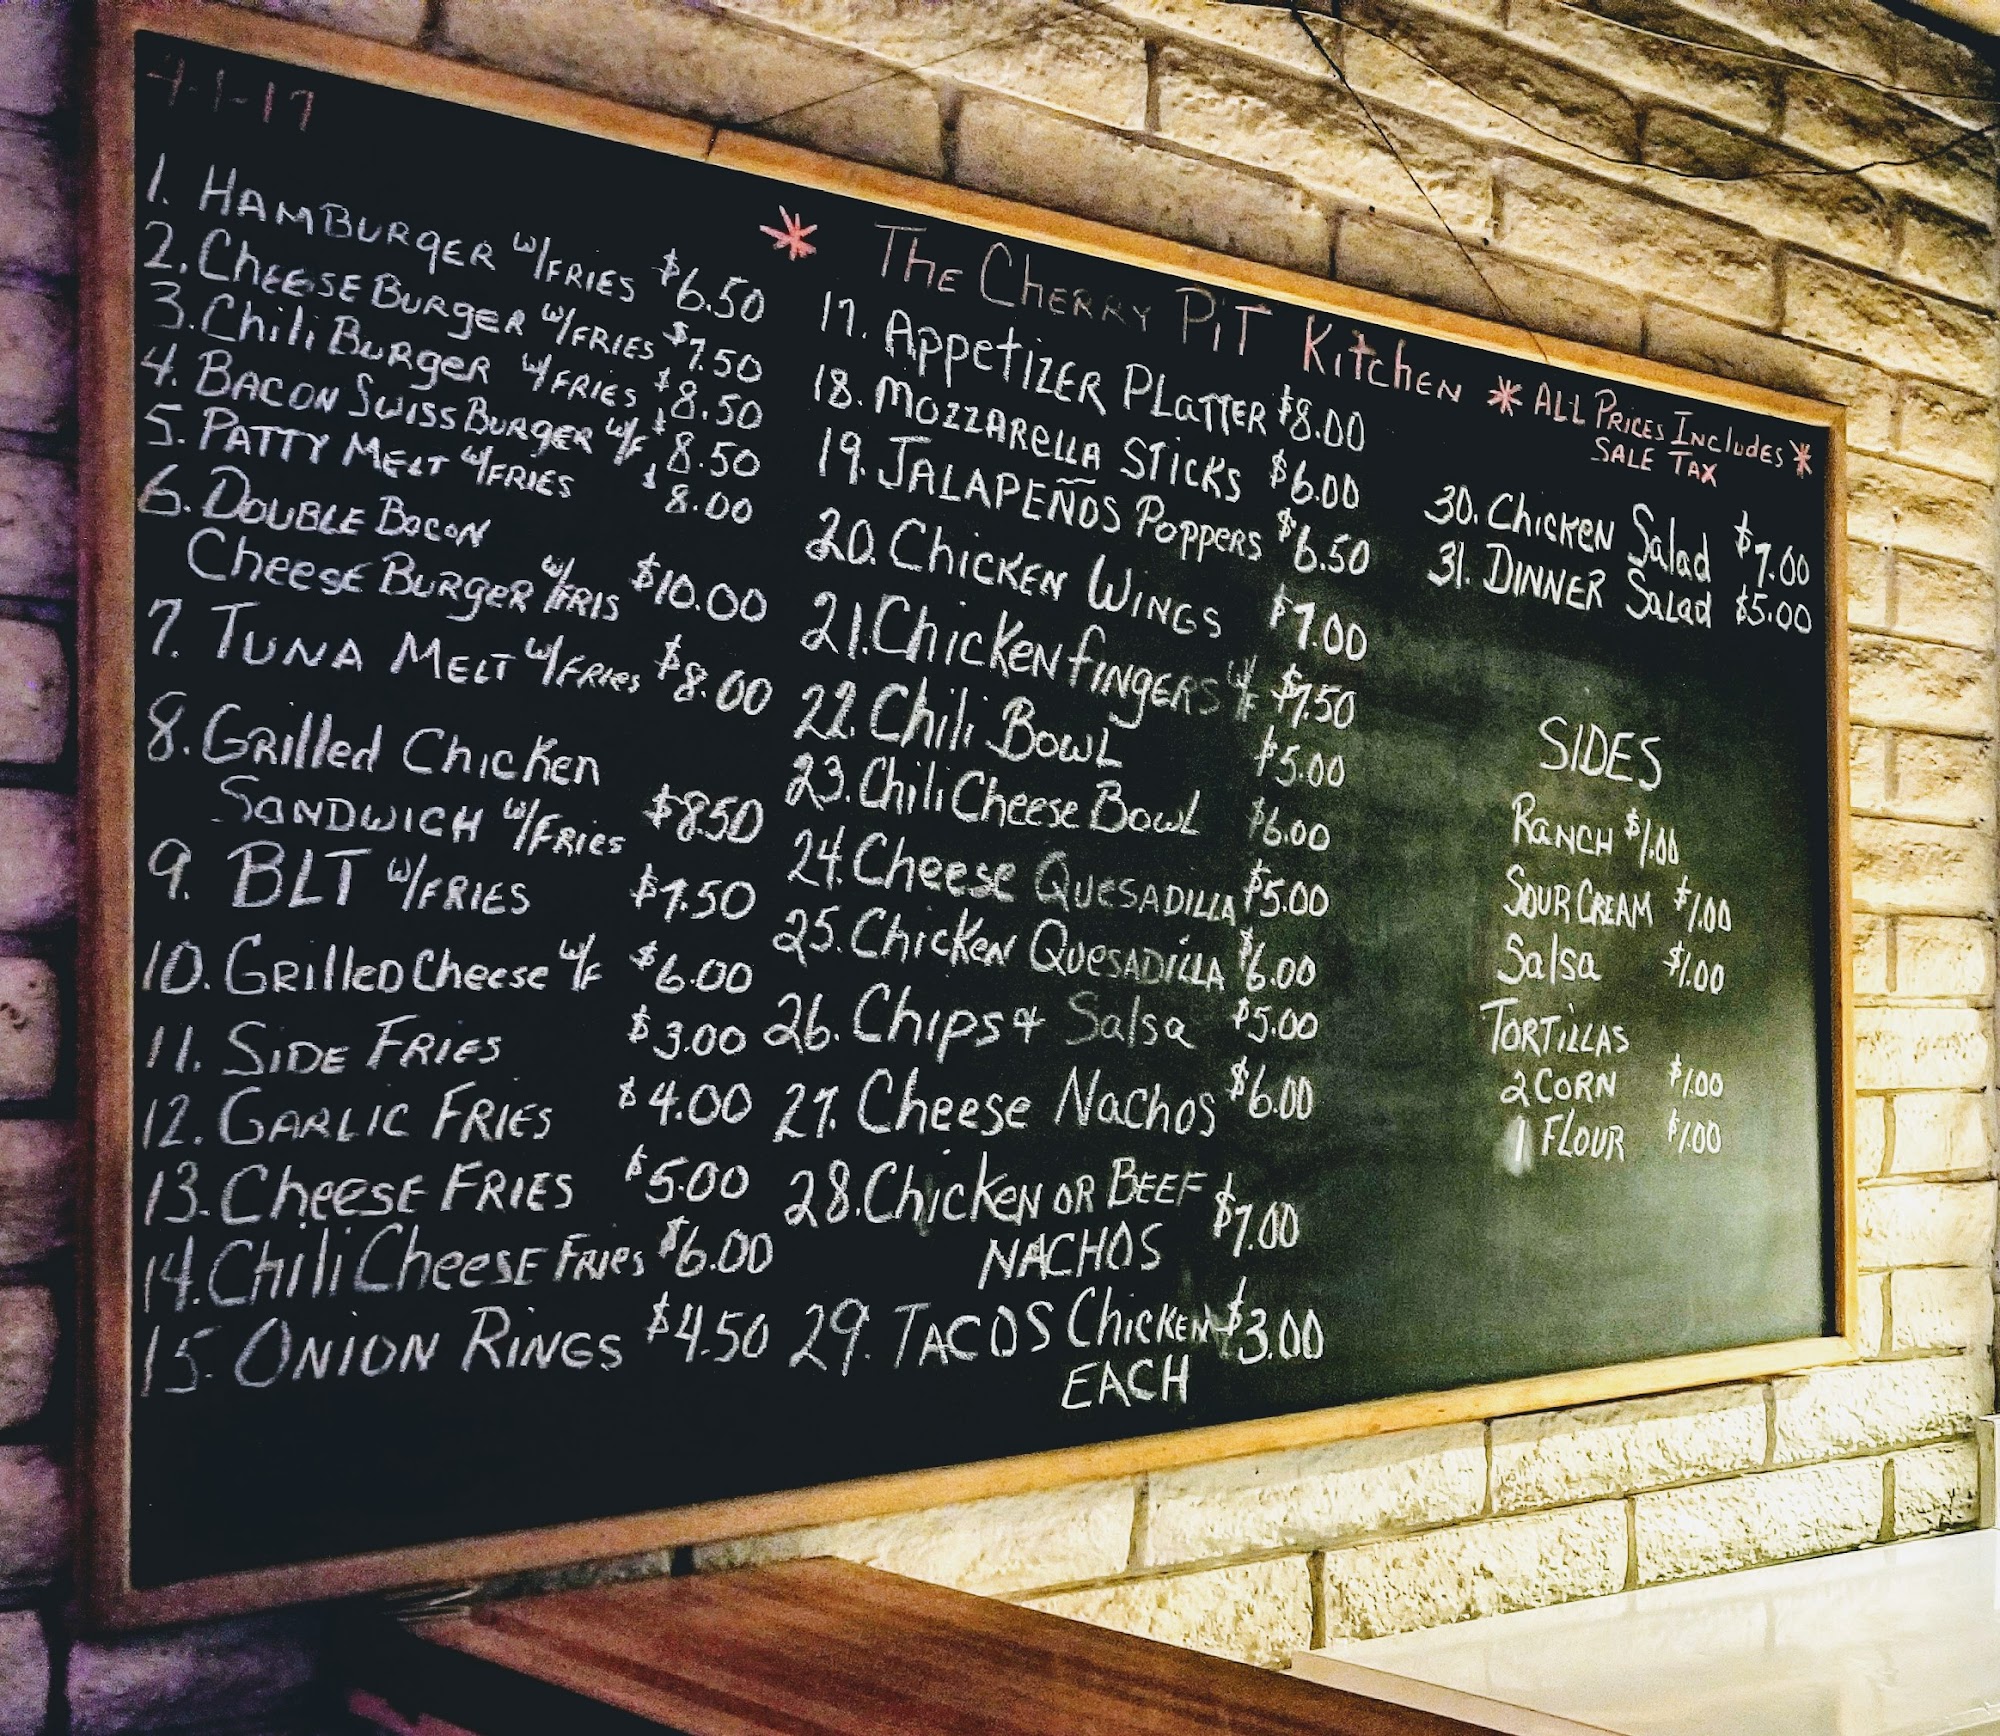 4-1-17
* The Cherry Pit Kitchen * All Prices Includes *
Sale Tax
1. Hamburger w/Fries $6.50
2. Cheese Burger w/Fries $7.50
3. Chili Burger w/Fries $8.50
4. Bacon Swiss Burger w/F $8.50
5. Patty Melt w/Fries $8.00
6. Double Bacon
Cheese Burger w/Fris $10.00
7. Tuna Melt w/Fries $8.00
8. Grilled Chicken
Sandwich w/Fries $8.50
9. BLT w/Fries $7.50
10. Grilled Cheese w/F $6.00
11. Side Fries $3.00
12. Garlic Fries $4.00
13. Cheese Fries $5.00
14. Chili Cheese Fries $6.00
15. Onion Rings $4.50
17. Appetizer Platter $8.00
18. Mozzarella Sticks $6.00
19. Jalapeños Poppers $6.50
20. Chicken Wings $7.00
21. Chicken Fingers w/F $7.50
22. Chili Bowl $5.00
23. Chili Cheese Bowl $6.00
24. Cheese Quesadilla $5.00
25. Chicken Quesadilla $6.00
26. Chips & Salsa $5.00
27. Cheese Nachos $6.00
28. Chicken or Beef
Nachos $7.00
29. Tacos Chicken $3.00
Each
30. Chicken Salad $7.00
31. Dinner Salad $5.00
SIDES
Ranch $1.00
Sour Cream $1.00
Salsa $1.00
Tortillas
2 Corn $1.00
1 Flour $1.00